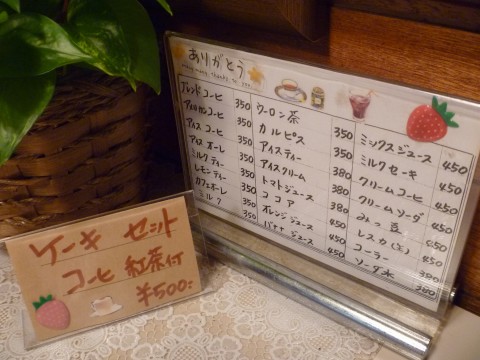 ありがとう
many many thanks to you
ブレンドコーヒ 350
アメリカンコーヒ 350
アイスコーヒ 350
アイスオーレ 350
ミルクティー 350
レモンティー 350
カフェオーレ 350
ミルク 350
ウーロン茶 350
カルピス 350
アイスティー 350
アイスクリーム 380
トマトジュース 380
ココア 450
オレンジジュース 450
バナナジュース 450
ミックスジュース 450
ミルクセーキ 450
クリームコーヒ 450
クリームソーダ 450
みつ豆 450
レスカ(生) 450
コーラー 380
ソーダ水 380
ケーキセット
コーヒ 紅茶付
¥500-